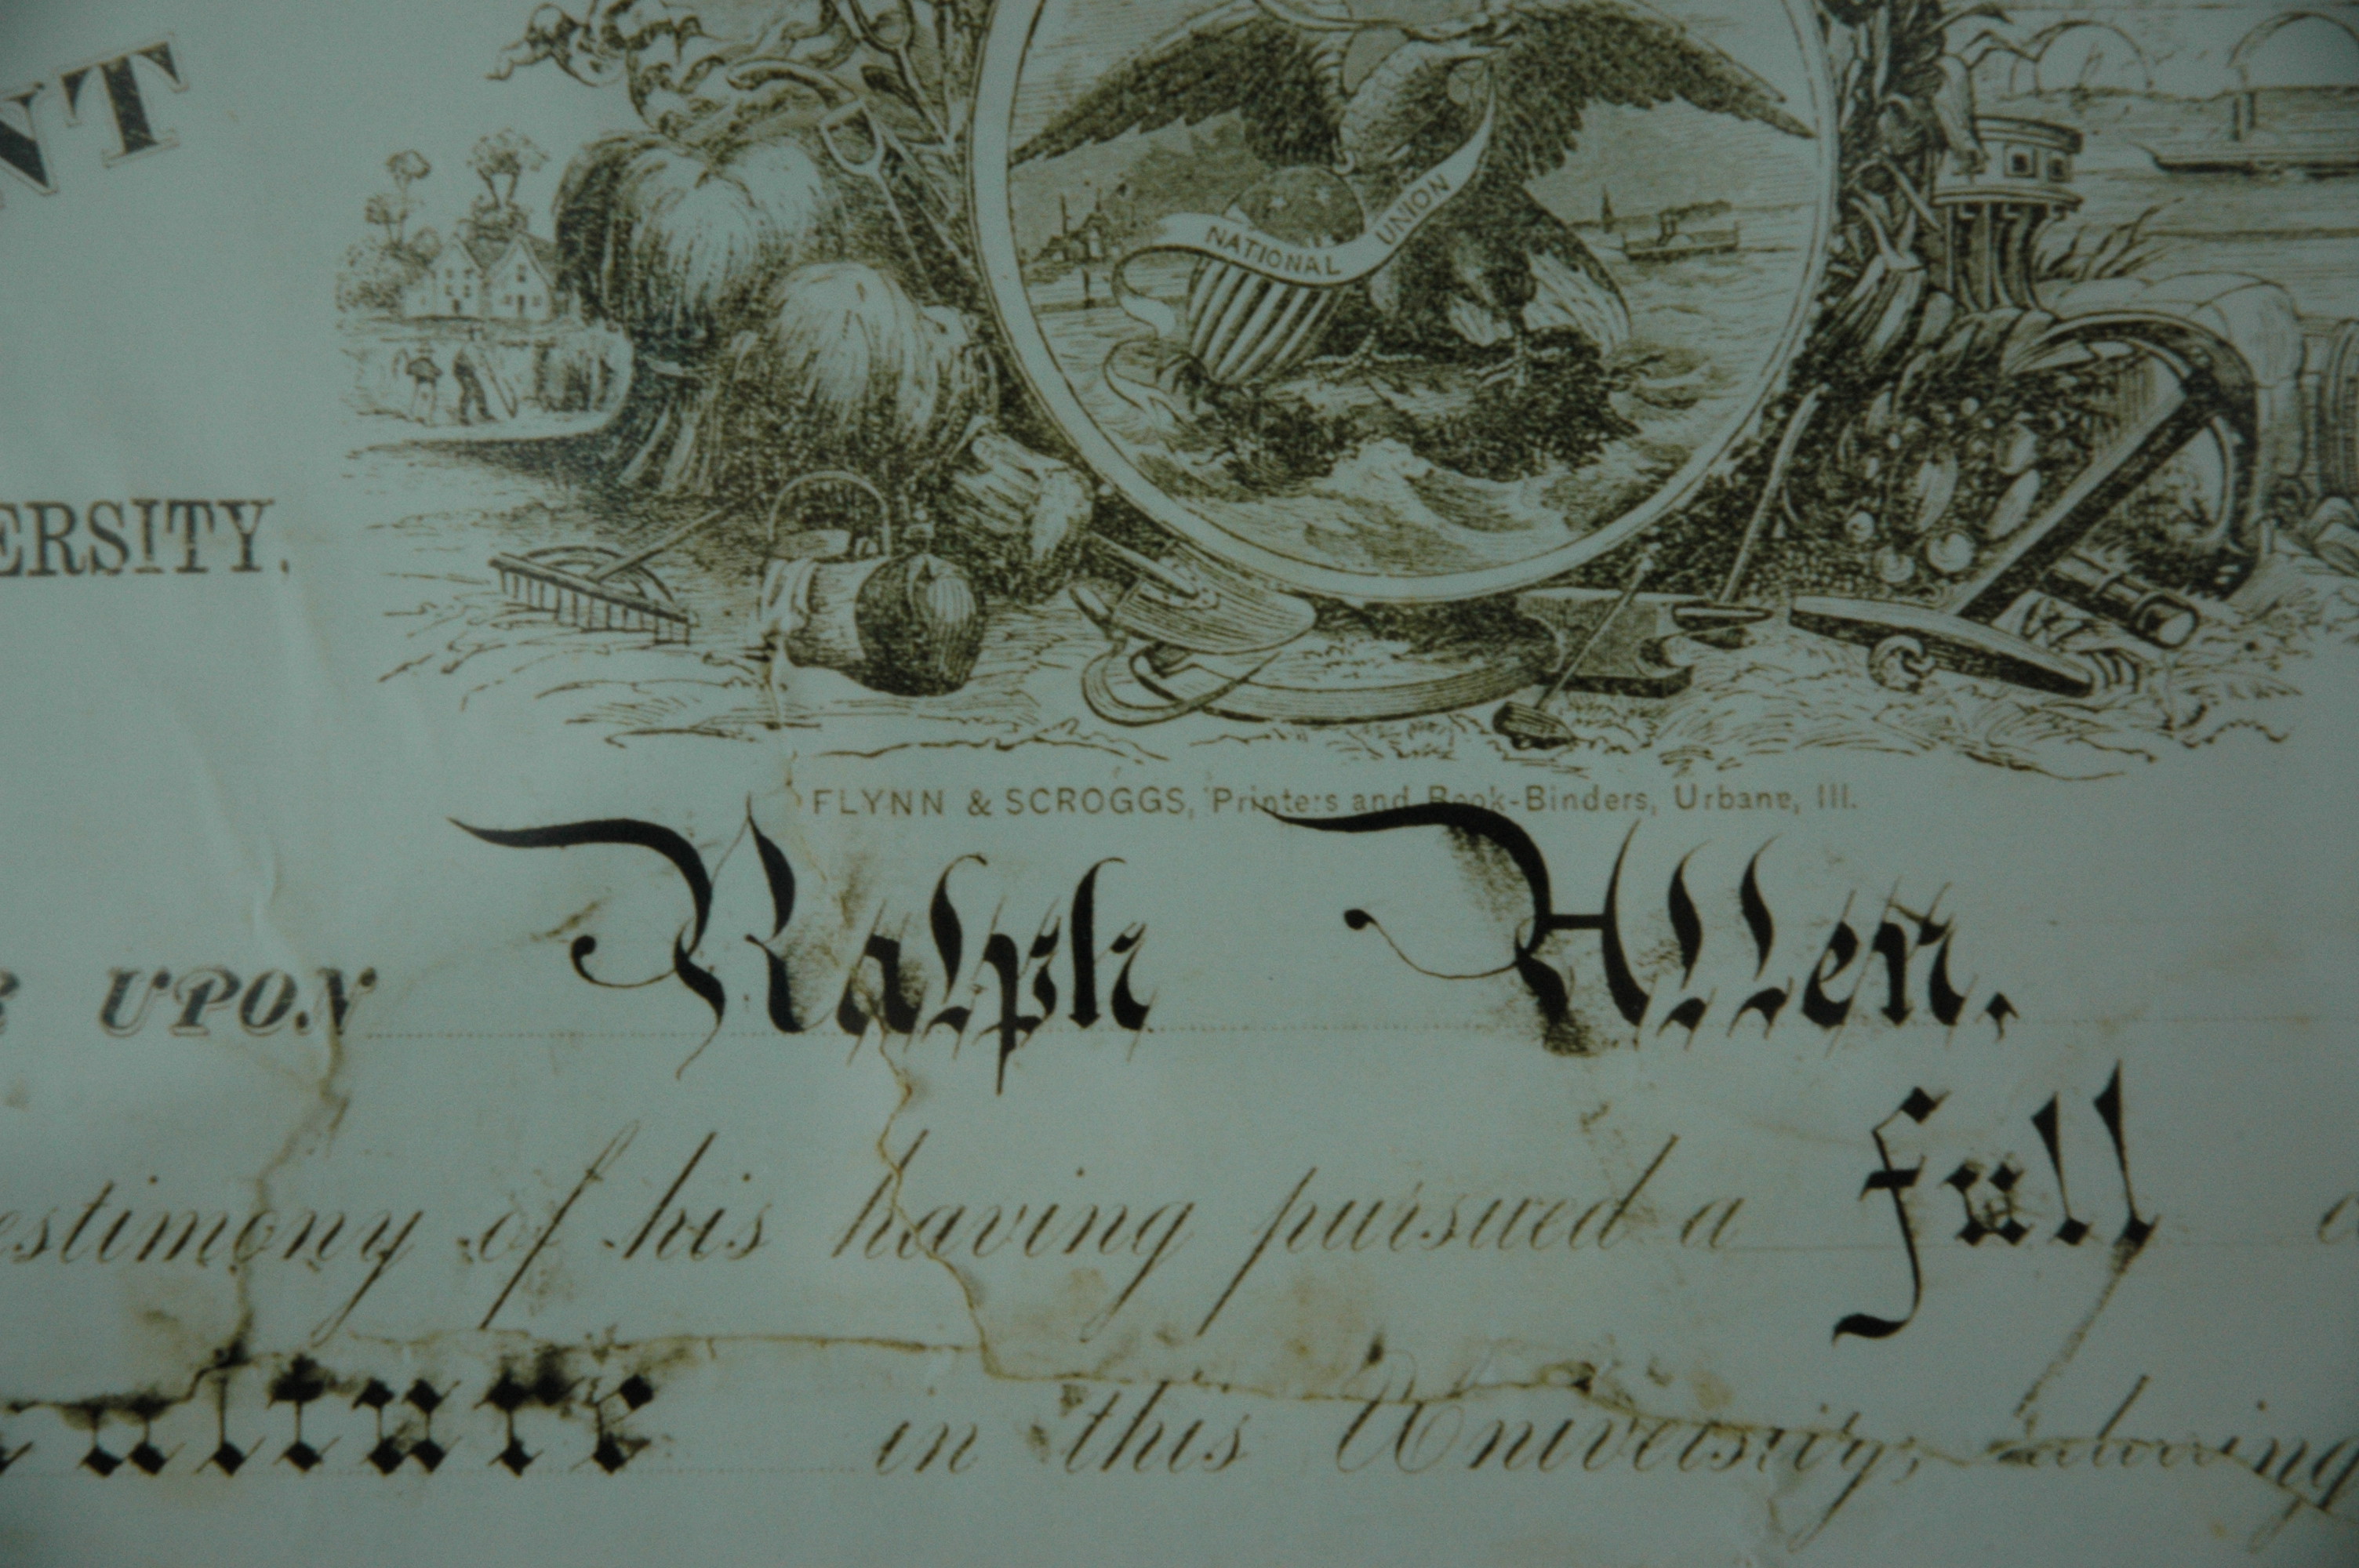 NT
NATIONAL UNION
ERSITY.
FLYNN & SCROGGS, Printers and Book-Binders, Urbana, Ill.
R UPON Ralph Allen.
estimony of his having pursued a full
ulture in this University, during